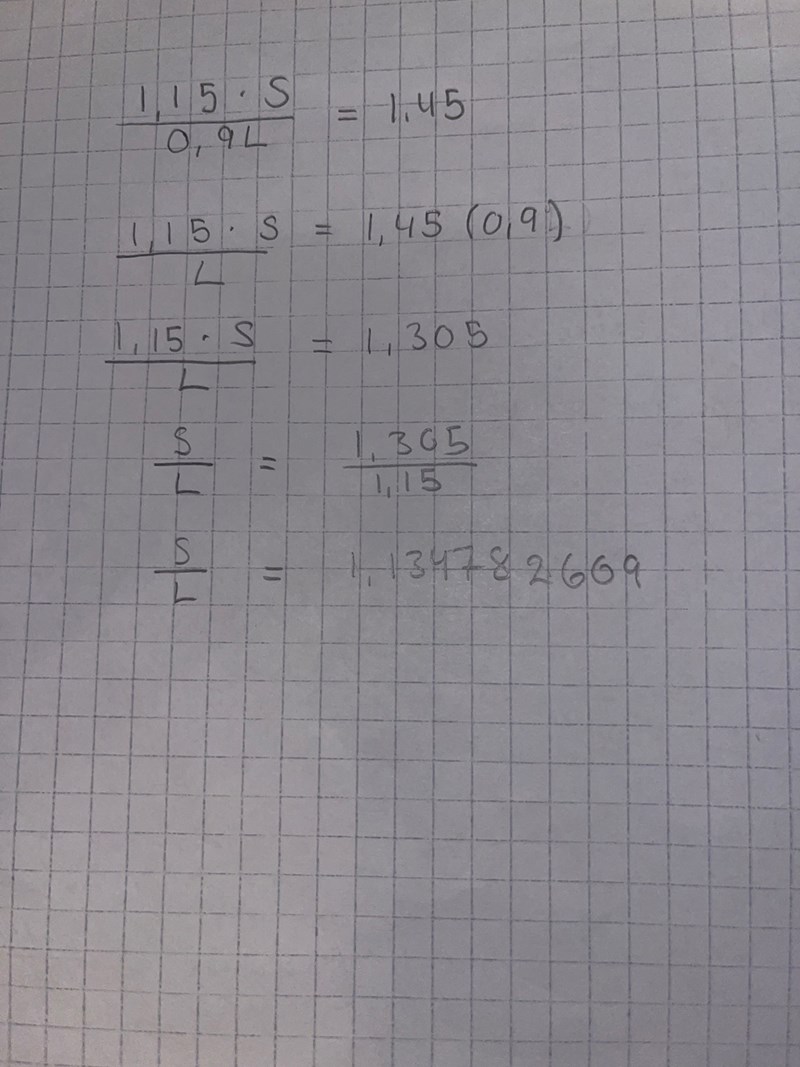 1,15 · S
0,9L
= 1.45
1,15 · S
L
= 1,45 (0,9)
1,15 · S
L
= 1,305
S
L
=
1,305
1,15
S
L
= 1,134782609